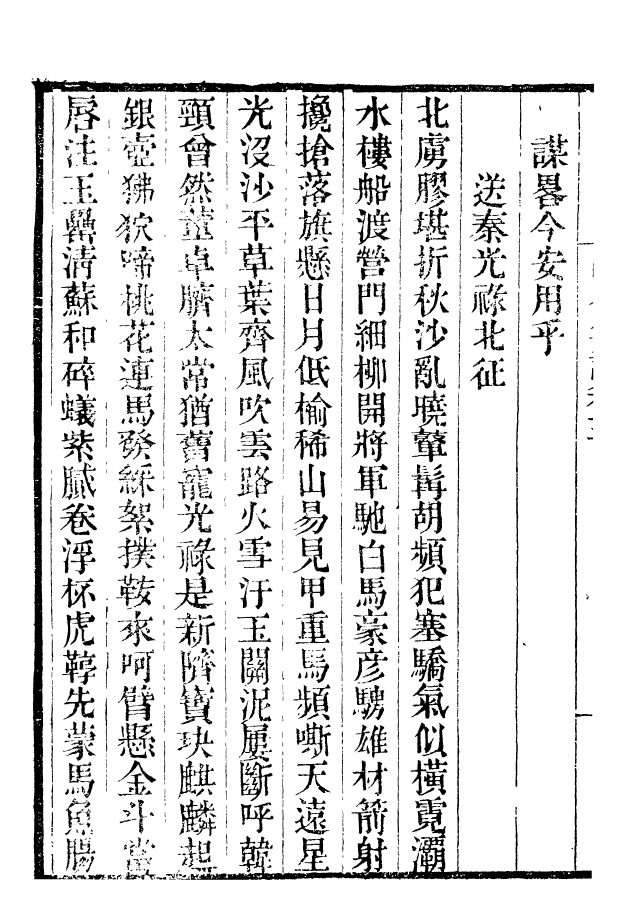 謀畧今安用乎
送秦光祿北征
北虜膠堪折秋沙亂曉鼙髯胡頻犯塞驕氣似橫霓灞
水樓船渡營門細柳開將軍馳白馬豪彦騁雄材箭射
攙搶落旗懸日月低榆稀山易見甲重馬頻嘶天遠星
光沒沙平草葉齊風吹雲路火雪汙玉關泥屢斷呼韓
頸曾然董卓臍太常猶舊寵光祿是新隮寶玦麒麟起
銀壺狒狖啼桃花連馬發綵絮撲鞍來呵臂懸金斗當
唇注玉罍清蘇和碎蟻紫膩卷浮杯虎鞟先蒙馬魚腸